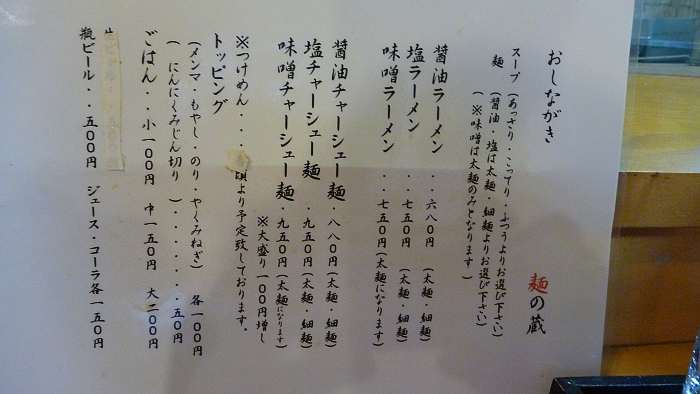 おしながき
麺の蔵
スープ(あっさり・こってり・ふつうよりお選び下さい)
麺(醤油・塩は太麺・細麺よりお選び下さい)
(※味噌は太麺のみとなります)
醤油ラーメン・・六八〇円(太麺・細麺)
塩ラーメン・・七五〇円(太麺・細麺)
味噌ラーメン・・七五〇円(太麺になります)
醤油チャーシュー麺・八八〇円(太麺・細麺)
塩チャーシュー麺・九五〇円(太麺・細麺)
味噌チャーシュー麺・九五〇円(太麺になります)
※大盛り一〇〇円増し
※つけめん・・・頃より予定致しております。
トッピング
(メンマ・もやし・のり・やくみねぎ)各一〇〇円
(にんにくみじん切り)・・・・・・五〇円
ごはん・・小一〇〇円 中一五〇円 大二〇〇円
瓶ビール・・五〇〇円 ジュース・コーラ各一五〇円